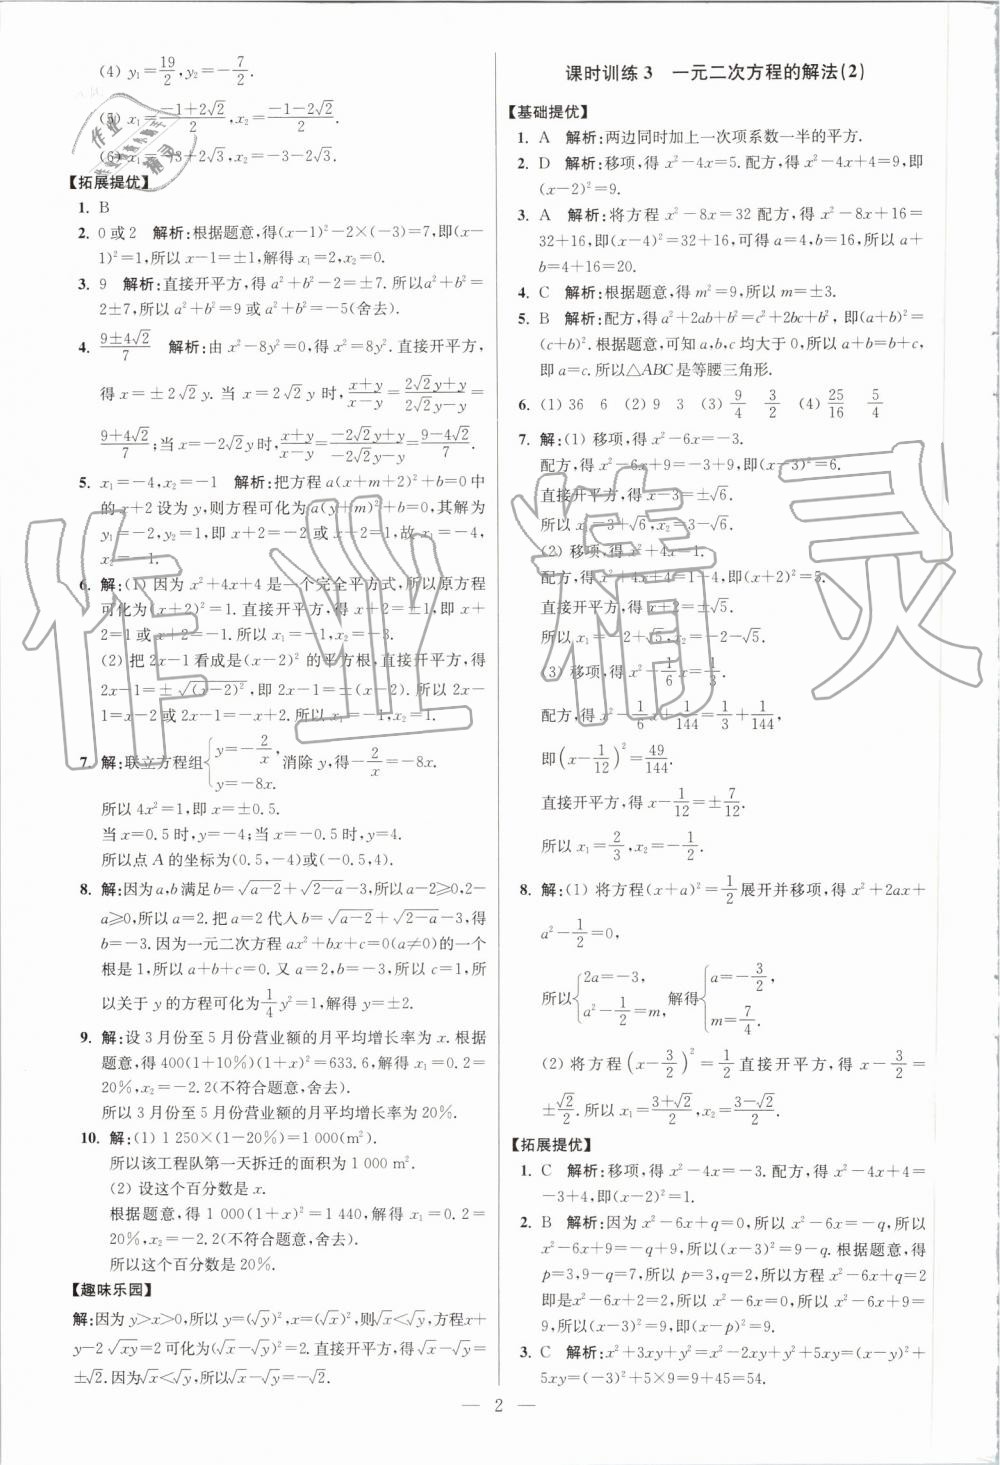 (4) y₁=19/2,y₂=-7/2.
(5) x₁=(-1+2√2)/2,x₂=(-1-2√2)/2.
(6) x₁=-3+2√3,x₂=-3-2√3.
【拓展提优】
1. B
2. 0或2 解析:根据题意,得(x-1)²-2×(-3)=7,即(x-
1)²=1,所以x-1=±1,解得x₁=2,x₂=0.
3. 9 解析:直接开平方,得a²+b²-2=±7.所以a²+b²=
2±7,所以a²+b²=9或a²+b²=-5(舍去).
4. (9±4√2)/7 解析:由x²-8y²=0,得x²=8y².直接开平方,
得x=±2√2y.当x=2√2y时,(x+y)/(x-y)=(2√2y+y)/(2√2y-y)=
(9+4√2)/7;当x=-2√2y时,(x+y)/(x-y)=(-2√2y+y)/(-2√2y-y)=(9-4√2)/7.
5. x₁=-4,x₂=-1 解析:把方程a(x+m+2)²+b=0中
的x+2设为y,则方程可化为a(y+m)²+b=0,其解为
y₁=-2,y₂=1,即x+2=-2或x+2=1,故x₁=-4,
x₂=-1.
6. 解:(1) 因为x²+4x+4是一个完全平方式,所以原方程
可化为(x+2)²=1.直接开平方,得x+2=±1,即x+
2=1或x+2=-1.所以x₁=-1,x₂=-3.
(2) 把2x-1看成是(x-2)²的平方根,直接开平方,得
2x-1=±√(x-2)²,即2x-1=±(x-2).所以2x-
1=x-2或2x-1=-x+2.所以x₁=-1,x₂=1.
7. 解:联立方程组{y=-2/x, y=-8x. 消除y,得-2/x=-8x.
所以4x²=1,即x=±0.5.
当x=0.5时,y=-4;当x=-0.5时,y=4.
所以点A的坐标为(0.5,-4)或(-0.5,4).
8. 解:因为a,b满足b=√(a-2)+√(2-a)-3,所以a-2≥0,2-
a≥0,所以a=2.把a=2代入b=√(a-2)+√(2-a)-3,得
b=-3.因为一元二次方程ax²+bx+c=0(a≠0)的一个
根是1,所以a+b+c=0.又a=2,b=-3,所以c=1,所
以关于y的方程可化为1/4y²=1,解得y=±2.
9. 解:设3月份至5月份营业额的月平均增长率为x.根据
题意,得400(1+10%)(1+x)²=633.6,解得x₁=0.2=
20%,x₂=-2.2(不符合题意,舍去).
所以3月份至5月份营业额的月平均增长率为20%.
10. 解:(1) 1 250×(1-20%)=1 000(m²).
所以该工程队第一天拆迁的面积为1 000 m².
(2) 设这个百分数是x.
根据题意,得1 000(1+x)²=1 440,解得x₁=0.2=
20%,x₂=-2.2(不符合题意,舍去).
所以这个百分数是20%.
【趣味乐园】
解:因为y>x>0,所以y=(√y)²,x=(√x)²,则√x<√y,方程x+
y-2√xy=2可化为(√x-√y)²=2.直接开平方,得√x-√y=
±√2.因为√x<√y,所以√x-√y=-√2.
课时训练3 一元二次方程的解法(2)
【基础提优】
1. A 解析:两边同时加上一次项系数一半的平方.
2. D 解析:移项,得x²-4x=5.配方,得x²-4x+4=9,即
(x-2)²=9.
3. A 解析:将方程x²-8x=32配方,得x²-8x+16=
32+16,即(x-4)²=32+16,可得a=4,b=16,所以a+
b=4+16=20.
4. C 解析:根据题意,得m²=9,所以m=±3.
5. B 解析:配方,得a²+2ab+b²=c²+2bc+b²,即(a+b)²=
(c+b)².根据题意,可知a,b,c均大于0,所以a+b=b+c,
即a=c.所以△ABC是等腰三角形.
6. (1) 36 6 (2) 9 3 (3) 9/4 3/2 (4) 25/16 5/4
7. 解:(1) 移项,得x²-6x=-3.
配方,得x²-6x+9=-3+9,即(x-3)²=6.
直接开平方,得x-3=±√6.
所以x₁=3+√6,x₂=3-√6.
(2) 移项,得x²+4x=1.
配方,得x²+4x+4=1+4,即(x+2)²=5.
直接开平方,得x+2=±√5.
所以x₁=-2+√5,x₂=-2-√5.
(3) 移项,得x²-1/6x=1/3.
配方,得x²-1/6x+1/144=1/3+1/144,
即(x-1/12)²=49/144.
直接开平方,得x-1/12=±7/12.
所以x₁=2/3,x₂=-1/2.
8. 解:(1) 将方程(x+a)²=1/2展开并移项,得x²+2ax+
a²-1/2=0,
所以{2a=-3, a²-1/2=m, 解得{a=-3/2, m=7/4.
(2) 将方程(x-3/2)²=1/2直接开平方,得x-3/2=
±√2/2.所以x₁=(3+√2)/2,x₂=(3-√2)/2.
【拓展提优】
1. C 解析:移项,得x²-4x=-3.配方,得x²-4x+4=
-3+4,即(x-2)²=1.
2. B 解析:因为x²-6x+q=0,所以x²-6x=-q,所以
x²-6x+9=-q+9,所以(x-3)²=9-q.根据题意,得
p=3,9-q=7,所以p=3,q=2,所以方程x²-6x+q=2
即是x²-6x+2=2,所以x²-6x=0,所以x²-6x+9=
9,所以(x-3)²=9,即(x-p)²=9.
3. C 解析:x²+3xy+y²=x²-2xy+y²+5xy=(x-y)²+
5xy=(-3)²+5×9=9+45=54.
— 2 —
作业精灵